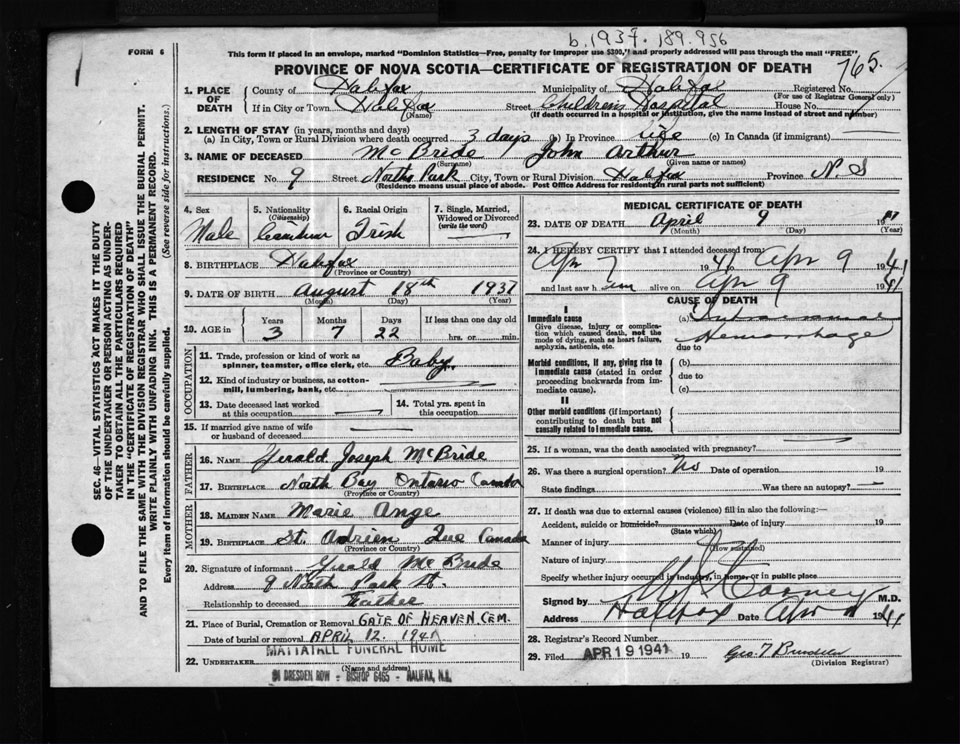 b. 1937. 189.956
FORM 6
This form if placed in an envelope, marked "Dominion Statistics—Free, penalty for improper use $300," and properly addressed will pass through the mail "FREE"
PROVINCE OF NOVA SCOTIA—CERTIFICATE OF REGISTRATION OF DEATH
765.
1. PLACE OF DEATH
County of Halifax Municipality of Halifax Registered No.
(For use of Registrar General only)
If in City or Town Halifax Street Childrens Hospital House No.
(Name) (If death occurred in a hospital or institution, give the name instead of street and number)
2. LENGTH OF STAY (in years, months and days)
(a) In City, Town or Rural Division where death occurred 3 days (b) In Province life (c) In Canada (if immigrant)
3. NAME OF DECEASED McBride John Arthur
(Surname) (Given name or names)
RESIDENCE No 9 Street North Park City, Town or Rural Division Halifax Province N. S
(Residence means usual place of abode. Post Office Address for residents in rural parts not sufficient)
4. Sex
Male
5. Nationality
(Citizenship)
Canadian
6. Racial Origin
Irish
7. Single, Married, Widowed or Divorced
(write the word)
8. BIRTHPLACE Halifax
(Province or Country)
9. DATE OF BIRTH August 18th 1937
(Month) (Day) (Year)
10. AGE in
Years Months Days If less than one day old
3 7 22 hrs. or min.
OCCUPATION
11. Trade, profession or kind of work as spinner, teamster, office clerk, etc. Baby.
12. Kind of industry or business, as cotton-mill, lumbering, bank, etc.
13. Date deceased last worked at this occupation
14. Total yrs. spent in this occupation
15. If married give name of wife or husband of deceased
FATHER
16. NAME Gerald Joseph McBride
17. BIRTHPLACE North Bay Ontario Canada
(Province or Country)
MOTHER
18. MAIDEN NAME Marie Ange
19. BIRTHPLACE St. Adrien Que Canada
(Province or Country)
20. Signature of informant Gerald McBride
Address 9 North Park St.
Relationship to deceased Father
21. Place of Burial, Cremation or Removal GATE OF HEAVEN CEM.
Date of burial or removal APRIL 12. 1941
MATTATALL FUNERAL HOME
22. UNDERTAKER
(Name and address)
91 DRESDEN ROW - BISHOP 6465 - HALIFAX, N.S.
MEDICAL CERTIFICATE OF DEATH
23. DATE OF DEATH April 9 19
(Month) (Day) (Year)
24. I HEREBY CERTIFY that I attended deceased from:
Apr 7 1941 Apr 9 1941
and last saw h im alive on Apr 9 1941
CAUSE OF DEATH
I
Immediate cause
Give disease, injury or complication which caused death, not the mode of dying, such as heart failure, asphyxia, asthenia, etc.
(a) Intracranial
Hemorrhage
due to
Morbid conditions, if any, giving rise to immediate cause (stated in order proceeding backwards from immediate cause).
(b)
due to
(c)
II
Other morbid conditions (if important) contributing to death but not causally related to immediate cause.
25. If a woman, was the death associated with pregnancy?
26. Was there a surgical operation? No Date of operation 19
State findings Was there an autopsy? —
27. If death was due to external causes (violence) fill in also the following:—
Accident, suicide or homicide? Date of injury 19
(State which)
Manner of injury
(How sustained)
Nature of injury
Specify whether injury occurred in industry, in home, or in public place
Signed by M.D.
Address Halifax Date Apr 1941
28. Registrar's Record Number
29. Filed APR 19 1941 19
(Division Registrar)
SEC. 46—VITAL STATISTICS ACT MAKES IT THE DUTY
OF THE UNDERTAKER OR PERSON ACTING AS UNDER-
TAKER TO OBTAIN ALL THE PARTICULARS REQUIRED
IN THE "CERTIFICATE OF REGISTRATION OF DEATH"
AND TO FILE THE SAME WITH THE DIVISION REGISTRAR WHO SHALL ISSUE THE BURIAL PERMIT.
WRITE PLAINLY WITH UNFADING INK. THIS IS A PERMANENT RECORD.
Every item of information should be carefully supplied. (See reverse side for instructions.)